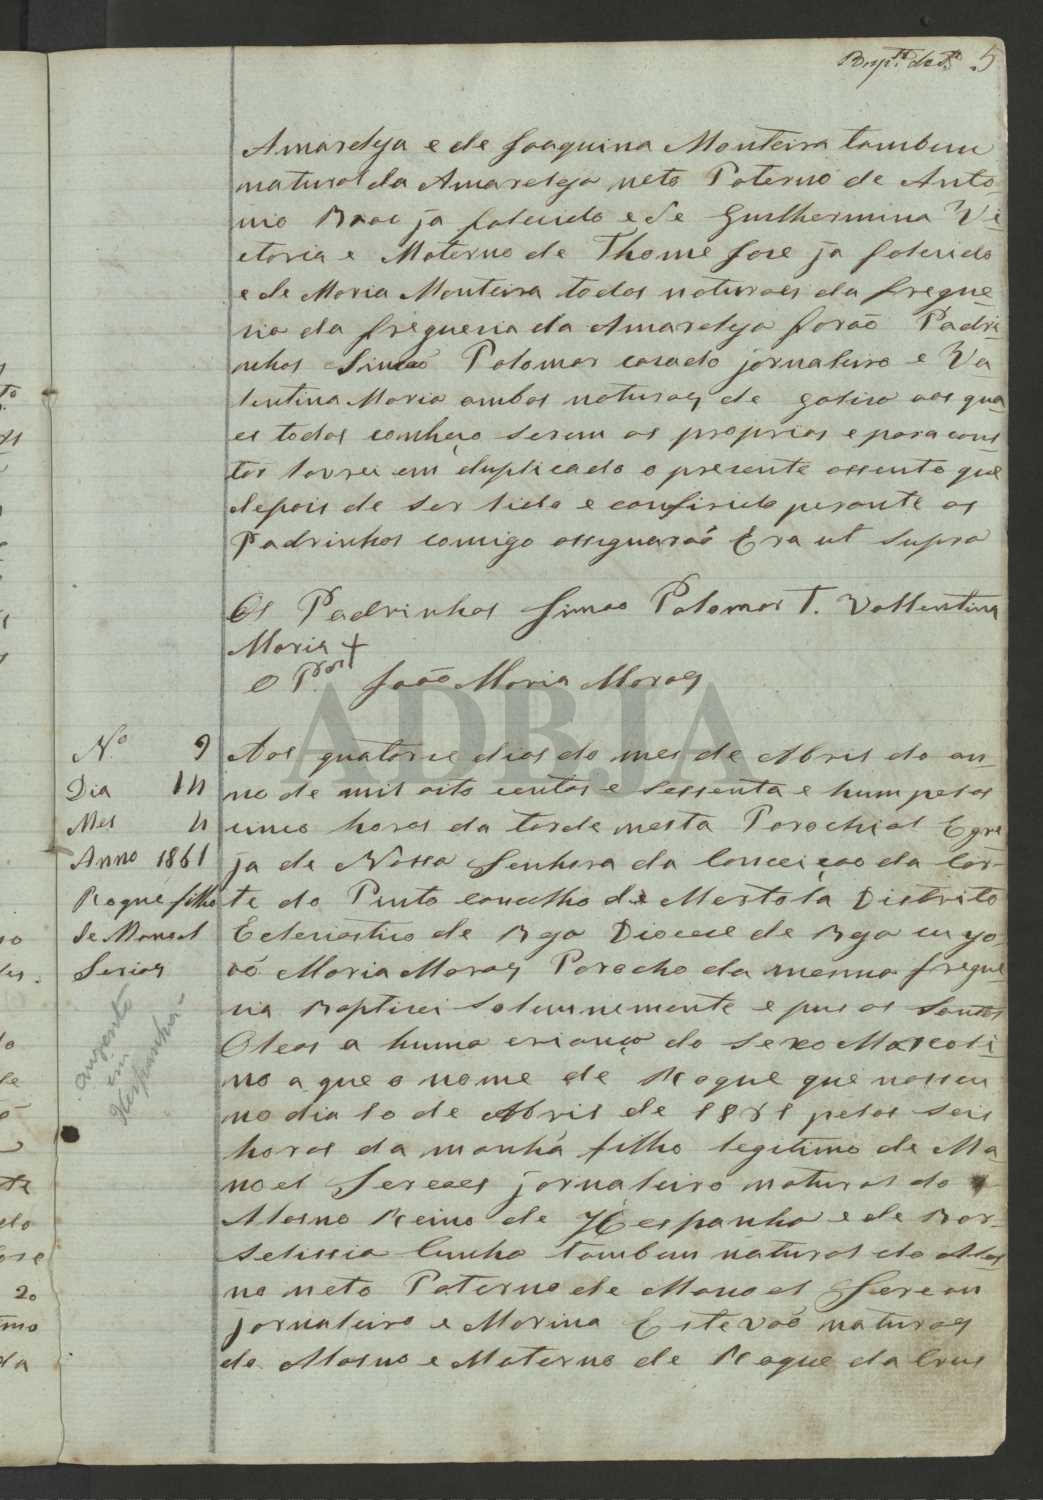 5
Amareleja e de Joaquina Monteira tambem
natural da Amareleja neto Paterno de Anto
nio ja falecido e de Guilhermina Vi
ctoria e Materno de Thome Jose ja falecido
e de Maria Monteira todos naturaes da fregue
sia da freguesia da Amareleja forão Padri
nhos Simão Palomar casado jornaleiro e Va
lentina Maria ambos naturaes de aos qua
es todos conheço serem os proprios e para cons
tar lavrei em duplicado o presente assento que
depois de ser lido e confirido perante os
Padrinhos comigo assignarão Era ut supra
Os Padrinhos Simão Palomar T. Vallentina
Maria +
O João Maria Moraes
ADBJA
No 9
Dia 14
Mes 4
Anno 1861
Roque filho
de Manoel
auzente
em
Hespanha
Aos quatorse dias do mes de Abril do an
no de mil oito centos e sessenta e hum pelas
cinco horas da tarde nesta Parochial Egre
ja de Nossa Senhora da Conceição da Cor-
te do Pinto concelho de Mertola Districto
Eclesiastico de Bga Diocese de Bga eu Jo
ão Maria Moraes Parocho da mesma fregue
sia Baptisei solemnemente e pus os Santos
Oleos a huma criança do sexo Mascoli
no a que o nome de Roque que nasceu
no dia 10 de Abril de 1861 pelas seis
horas da manhã filho legitimo de Ma
noel jornaleiro natural do
Alosno Reino de Hespanha e de
Cunha tambem natural do Alos
no neto Paterno de Manoel
jornaleiro e Marina Estevão naturaes
do Alosno e Materno de Roque da Crus